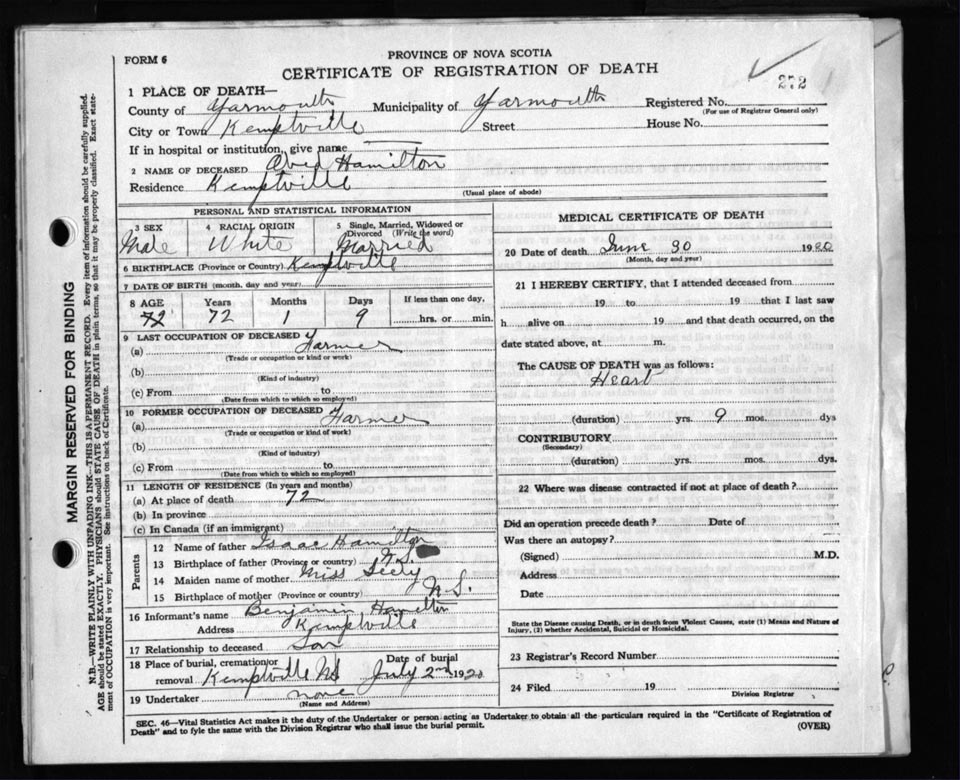 PROVINCE OF NOVA SCOTIA
FORM 6
CERTIFICATE OF REGISTRATION OF DEATH
272
1 PLACE OF DEATH—
County of Yarmouth Municipality of Yarmouth Registered No.
(For use of Registrar General only)
City or Town Kemptville Street House No.
If in hospital or institution, give name
2 NAME OF DECEASED Hamilton
Residence Kemptville
(Usual place of abode)
PERSONAL AND STATISTICAL INFORMATION
3 SEX 4 RACIAL ORIGIN 5 Single, Married, Widowed or Divorced (Write the word)
Male White Married
6 BIRTHPLACE (Province or Country) Kemptville
7 DATE OF BIRTH (month, day and year)
8 AGE Years Months Days If less than one day,
72 72 1 9 hrs. or min.
9 LAST OCCUPATION OF DECEASED
(a) Farmer
(Trade or occupation or kind of work)
(b)
(Kind of industry)
(c) From to
(Date from which to which so employed)
10 FORMER OCCUPATION OF DECEASED
(a) Farmer
(Trade or occupation or kind of work)
(b)
(Kind of industry)
(c) From to
(Date from which to which so employed)
11 LENGTH OF RESIDENCE (In years and months)
(a) At place of death 72
(b) In province
(c) In Canada (if an immigrant)
Parents
12 Name of father Isaac Hamilton
13 Birthplace of father (Province or country) N.S.
14 Maiden name of mother Miss Seely
15 Birthplace of mother (Province or country) N.S.
16 Informant's name Benjamin Hamilton
Address Kemptville
17 Relationship to deceased Son
18 Place of burial, cremation or removal Kemptville NS Date of burial July 2nd 1920
19 Undertaker none
(Name and Address)
MEDICAL CERTIFICATE OF DEATH
20 Date of death June 30 1920
(Month, day and year)
21 I HEREBY CERTIFY, that I attended deceased from
19 to 19 that I last saw
h alive on 19 and that death occurred, on the
date stated above, at m.
The CAUSE OF DEATH was as follows:
Heart
(duration) yrs. 9 mos. dys
CONTRIBUTORY
(Secondary)
(duration) yrs. mos. dys.
22 Where was disease contracted if not at place of death?
Did an operation precede death? Date of
Was there an autopsy?
(Signed) M.D.
Address
Date
State the Disease causing Death, or in death from Violent Causes, state (1) Means and Nature of
Injury, (2) whether Accidental, Suicidal or Homicidal.
23 Registrar's Record Number
24 Filed 19
Division Registrar
SEC. 46—Vital Statistics Act makes it the duty of the Undertaker or person acting as Undertaker to obtain all the particulars required in the "Certificate of Registration of
Death" and to fyle the same with the Division Registrar who shall issue the burial permit. (OVER)
MARGIN RESERVED FOR BINDING
N.B.—WRITE PLAINLY WITH UNFADING INK—THIS IS A PERMANENT RECORD. Every item of information should be carefully supplied.
AGE should be stated EXACTLY. PHYSICIANS should STATE CAUSE OF DEATH in plain terms, so that it may be properly classified. Exact state-
ment of OCCUPATION is very important. See instructions on back of Certificate.